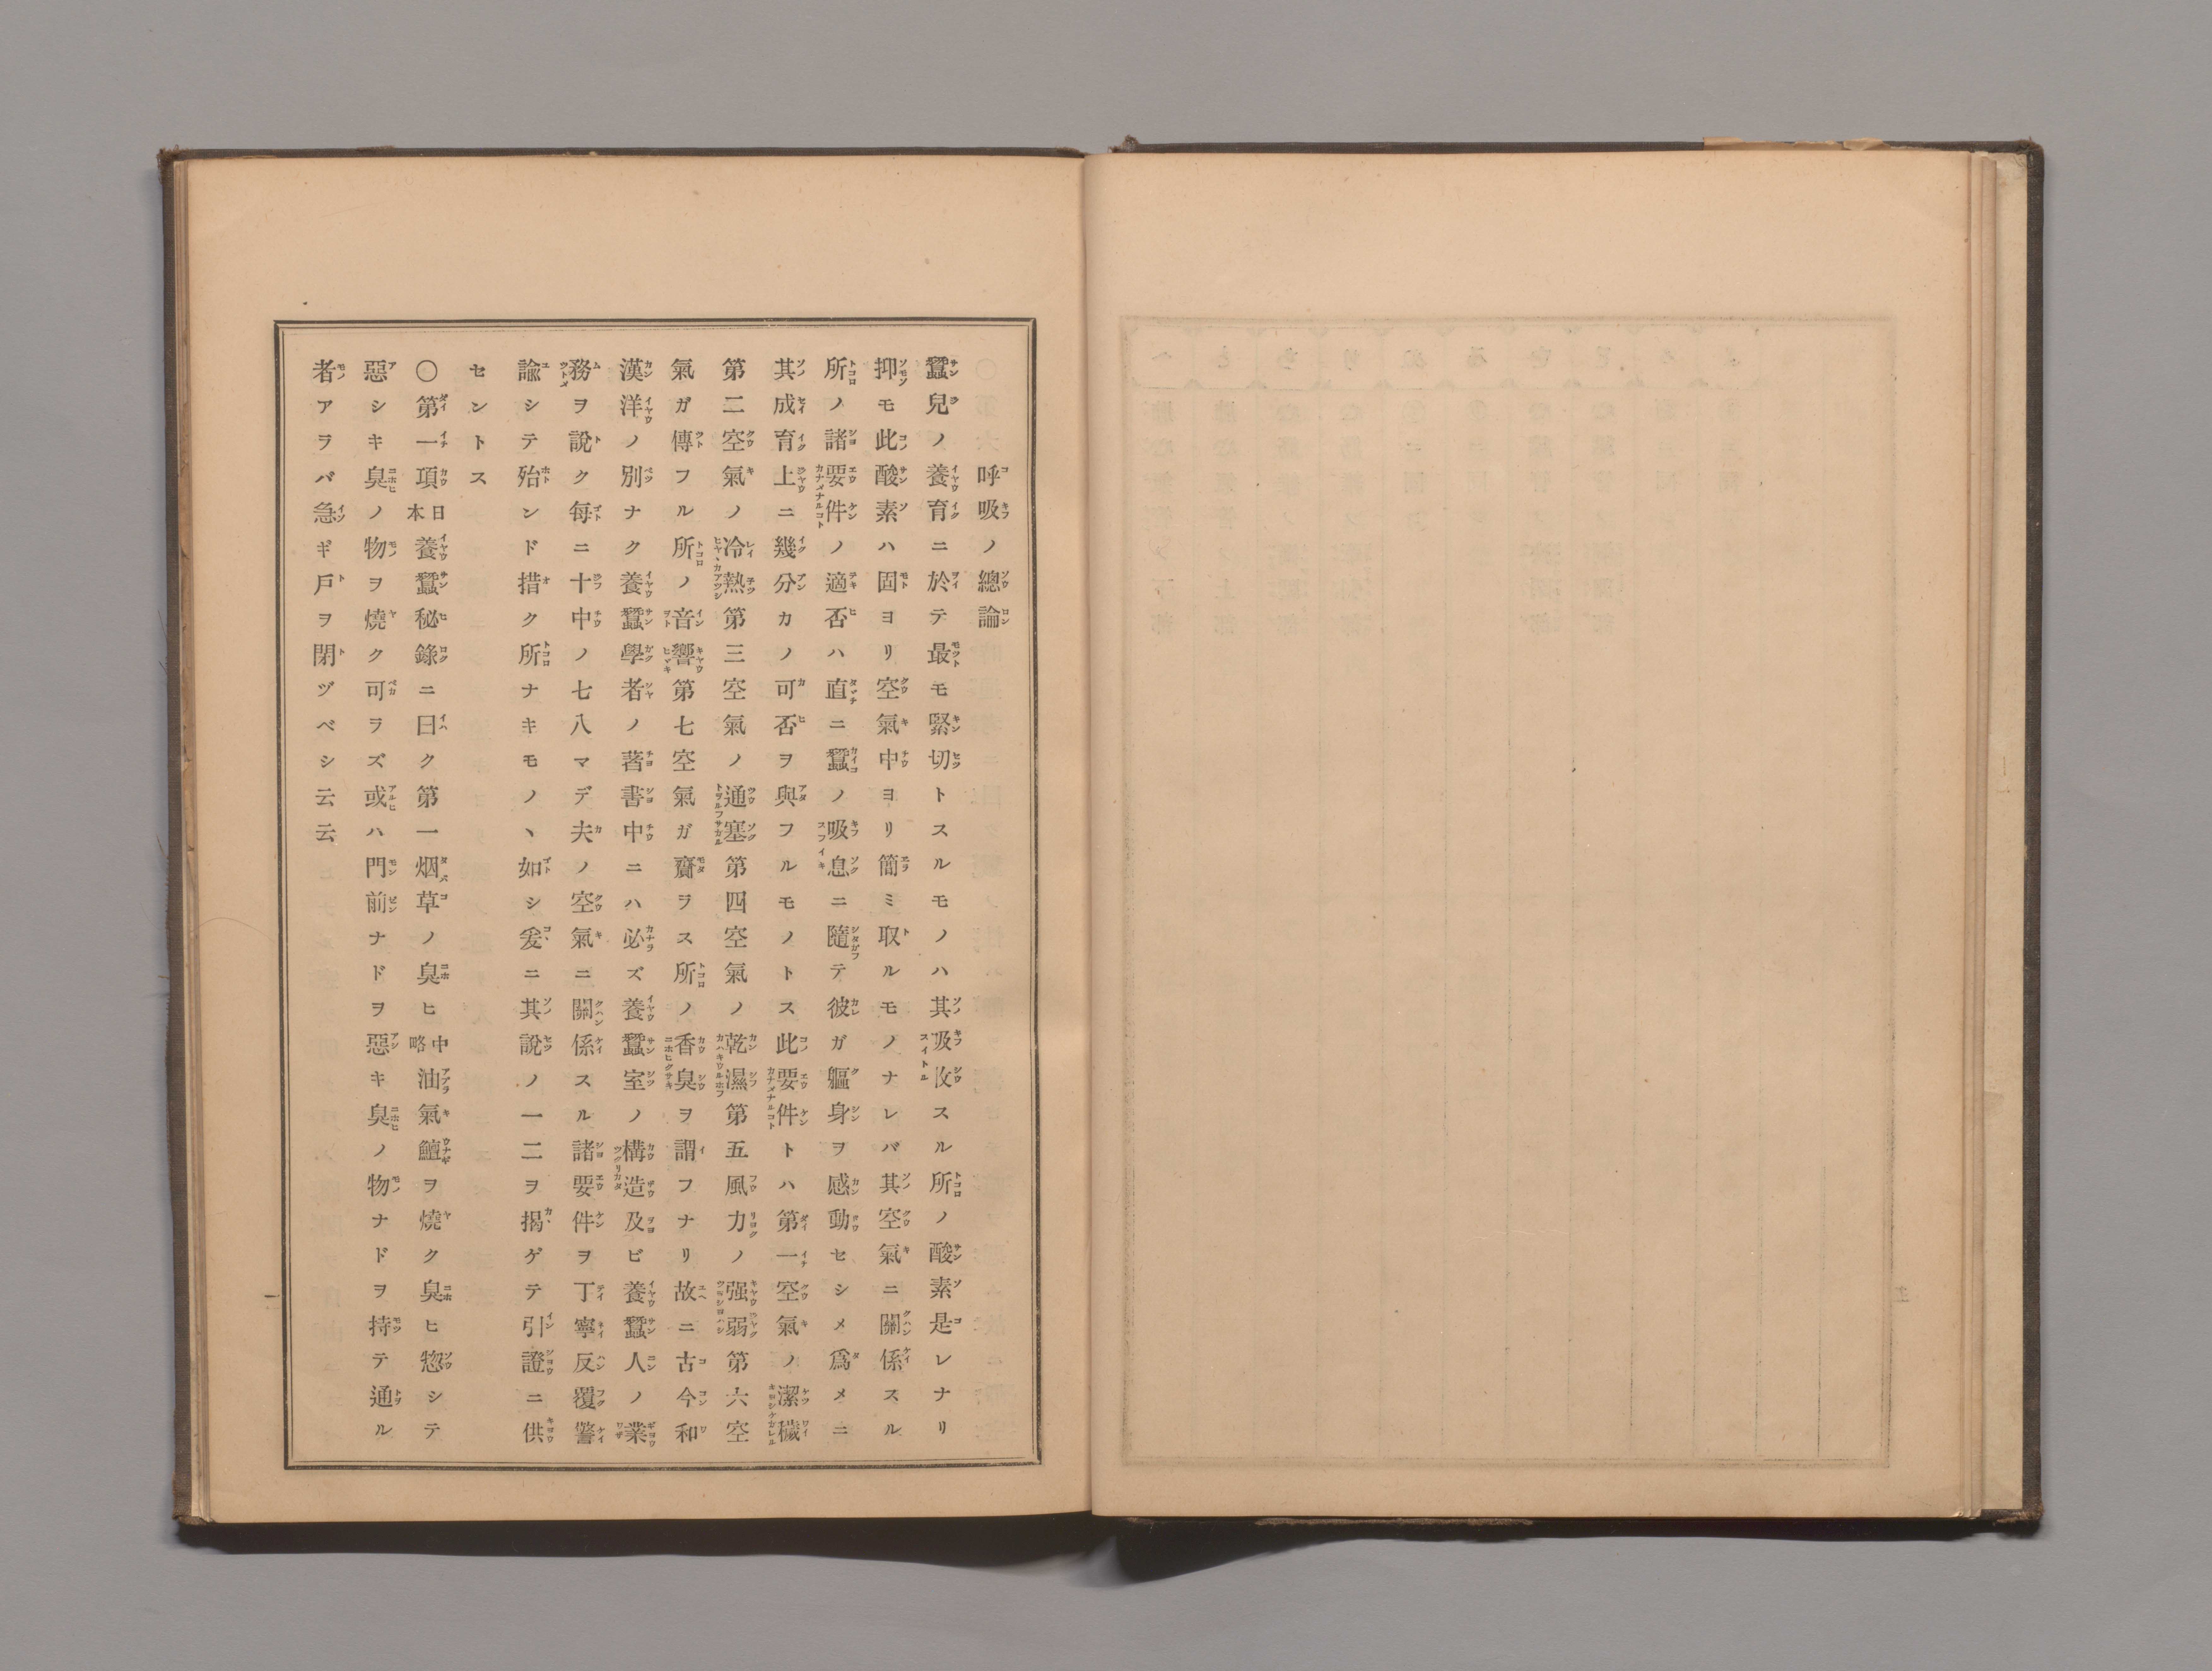 呼吸ノ總論
蠶兒ノ養育ニ於テ最モ緊切トスルモノハ其吸收スル所ノ酸素是レナリ
抑モ此酸素ハ固ヨリ空氣中ヨリ簡ミ取ルモノナレバ其空氣ニ關係スル
所ノ諸要件ノ適否ハ直ニ蠶ノ吸息ニ隨テ彼ガ軀身ヲ感動セシメ爲メニ
其成育上ニ幾分カノ可否ヲ與フルモノトス此要件トハ第一空氣ノ潔穢
第二空氣ノ冷熱第三空氣ノ通塞第四空氣ノ乾濕第五風力ノ强弱第六空
氣ガ傳フル所ノ音響第七空氣ガ齎ヲス所ノ香臭ヲ謂フナリ故ニ古今和
漢洋ノ別ナク養蠶學者ノ著書中ニハ必ズ養蠶室ノ構造及ビ養蠶人ノ業
務ヲ說ク每ニ十中ノ七八マデ夫ノ空氣ニ關係スル諸要件ヲ丁寧反覆警
諭シテ殆ンド措ク所ナキモノヽ如シ爰ニ其說ノ一二ヲ揭ゲテ引證ニ供
セントス
〇第一項日本養蠶秘錄ニ曰ク第一烟草ノ臭ヒ中略油氣鱣ヲ燒ク臭ヒ惣シテ
惡シキ臭ノ物ヲ燒ク可ヲズ或ハ門前ナドヲ惡キ臭ノ物ナドヲ持テ通ル
者アヲバ急ギ戶ヲ閉ヅベシ云云
一